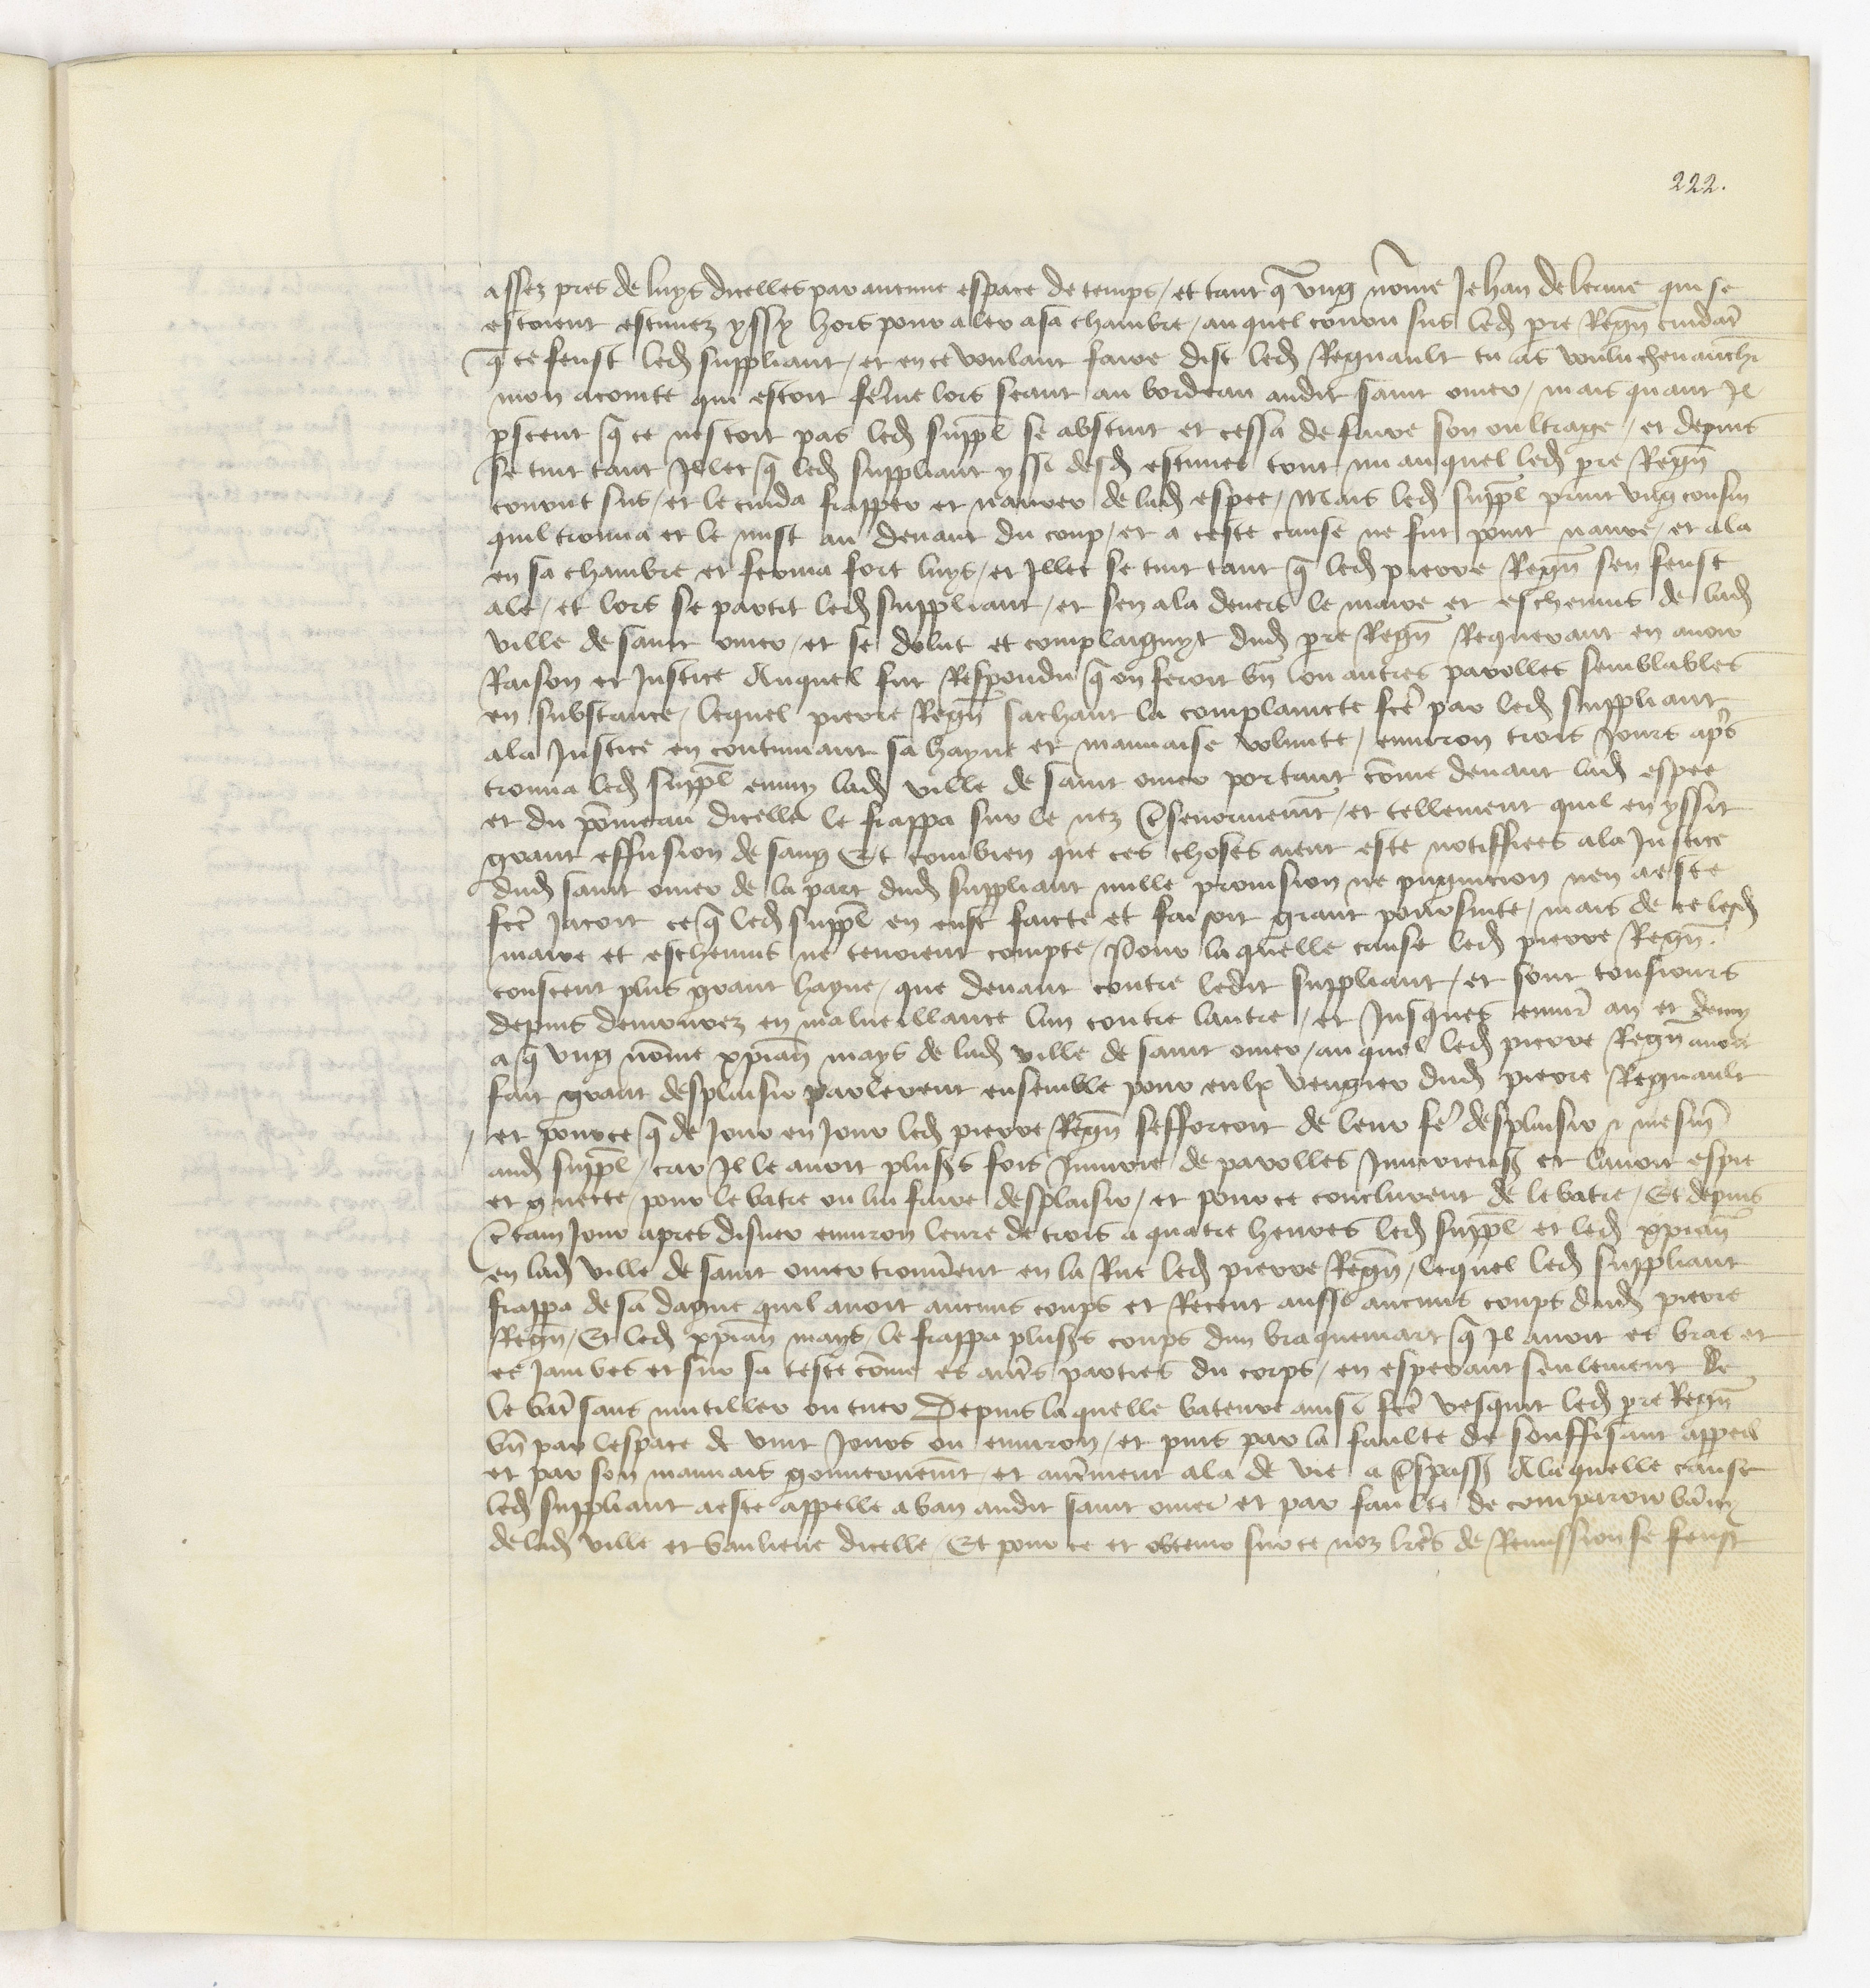 222.
assez pres de luys dicelles par aucune espace de temps / et tant q̃ vng nõme Jehan de lerme qui se
estoient estuuez yssy hors pour aler a sa chambre / auquel couru sus led pre Regñ cuidãt
q̃ ce feust led suppliant / et en ce voulant faire dist led Regnault tu as voulu cheuauchr̃
mon acointe qui estoit fẽme lors seant au bordeau audit saint omer / mais quant Jl
ꝑsceut q̃ ce nestoit pas led suppl̃ se abstint et cessa de faire son oultrage / et depuis
se tint tant Jllec q̃ led suppliant yssi desd estuues tout nu auquel led pre Regñ
courut sus / et le cuida frapper et naurer de lad espee / Mais led suppl̃ print vng cousin
quil trouua et le mist au deuant du coup / et a ceste cause ne fut point naure / et ala
en sa chambre et ferma fort luys / et Jllec se tint tant q̃ led pierre Regñ sen feust
ale / et lors se partit led suppliant / et sen ala deuers le maire et escheuins de lad
ville de saint omer / et se dolut et complaignyt dud pre Regñ Requerant en auoir
Raison et Justice Auquel fut Respondu q̃ on feroit bñ lou autres parolles semblables
en substance / lequel pierre Regñ sachant la complaincte fcẽ par led suppliant
ala Justice en continuant sa hayne et mauuaise volunte / enuiron trois Jours apr̃s
trouua led suppl̃ emmy lad ville de saint omer portant cõme deuant lad espee
et du põmeau dicelle le frappa sur le nez et enormemẽt / et tellement quil en yssit
grant effusion de sang Et combien que ces choses aient este notiffiees ala Justice
dud saint omer de la part dud suppliant nulle prouision ne pugnicion nen a este
fcẽ Jacoit ce q̃ led suppl̃ en eust faicte et faisoit grant poursuite / mais de ce lesd
maire et escheuins ne tenoient compte / Pour laquelle cause led pierre Regñ.
consceut plus grant hayne / que deuant contre ledit suppliant / et sont tousiours
depuis demourez en malueillance lun contre lautre / et Jusques enuir̃ an et demy
a q̃ vng nõme xpiañ mays de lad ville de saint omer / auquel led pierre Regñ auoit
fait grant desplaisir parlerent ensemble pour eulx vengier dud pierre Regnault
/ et pource q̃ de Jour en Jour led pierre Regñ sefforcoit de leur fẽ desplaisir & mesm̃
aud suppl̃ / car Jl le auoit plusrs fois Jniurie de parolles Jniurieuses et lauoit espie
et guette / pour le batre ou lui faire desplaisir / et pour ce conclurent de le batre / Et depuis
certain Jour apres disner enuiron leure de trois a quatre heures led suppl̃ et led xpiañ
en lad ville de saint omer trouuẽrent en la Rue led pierre Regñ / lequel led suppliant
frappa de sa dague quil auoit aucuns coups et Receut aussi aucuns coups dud pierre
Regñ / Et led xpiañ mays / le frappa plusrs coups dun braquemart q̃ Jl auoit es bras et
es Jambes et sur sa teste cõme es autr̃s parties du corps / en esperant seulement de
le batr̃ sans mutiller ou tuer Depuis laquelle bateure ainsi fcẽ vesquit led pre Regñ
bñ par lespace de vint Jours ou enuiron / et puis par la faulte de souffisant appeil
et par son mauuais gouuernemẽt / et autr̃ement ala de vie a trespass Ala quelle cause
led suppliant a este appelle a ban audit saint omer et par faulte de comparoir bãny
de lad ville et banlieue dicelle / Et pour ce et obtenir sur ce noz lr̃es de Remission se feust